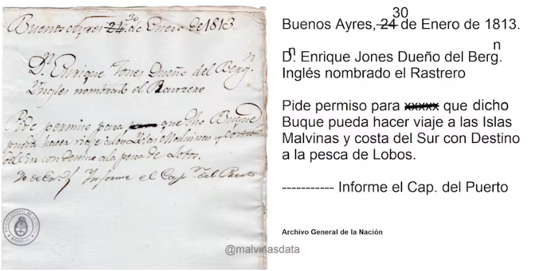 Buenos Ayres 24 30 de Enero de 1813.
Dn. Enrique Jones Dueño del Bergn.
Ingles nombrado el Rastrero
Pide permiso para que dho Buque
pueda hacer viaje a las Islas Malvinas y costa
del Sur con destino a la pesca de Lobos.
Informe el Cap. del Puerto
30
Buenos Ayres, 24 de Enero de 1813.
Dn. Enrique Jones Dueño del Bergn.
Inglés nombrado el Rastrero
Pide permiso para xxxxx que dicho
Buque pueda hacer viaje a las Islas
Malvinas y costa del Sur con Destino
a la pesca de Lobos.
----------- Informe el Cap. del Puerto
Archivo General de la Nación
@malvinasdata